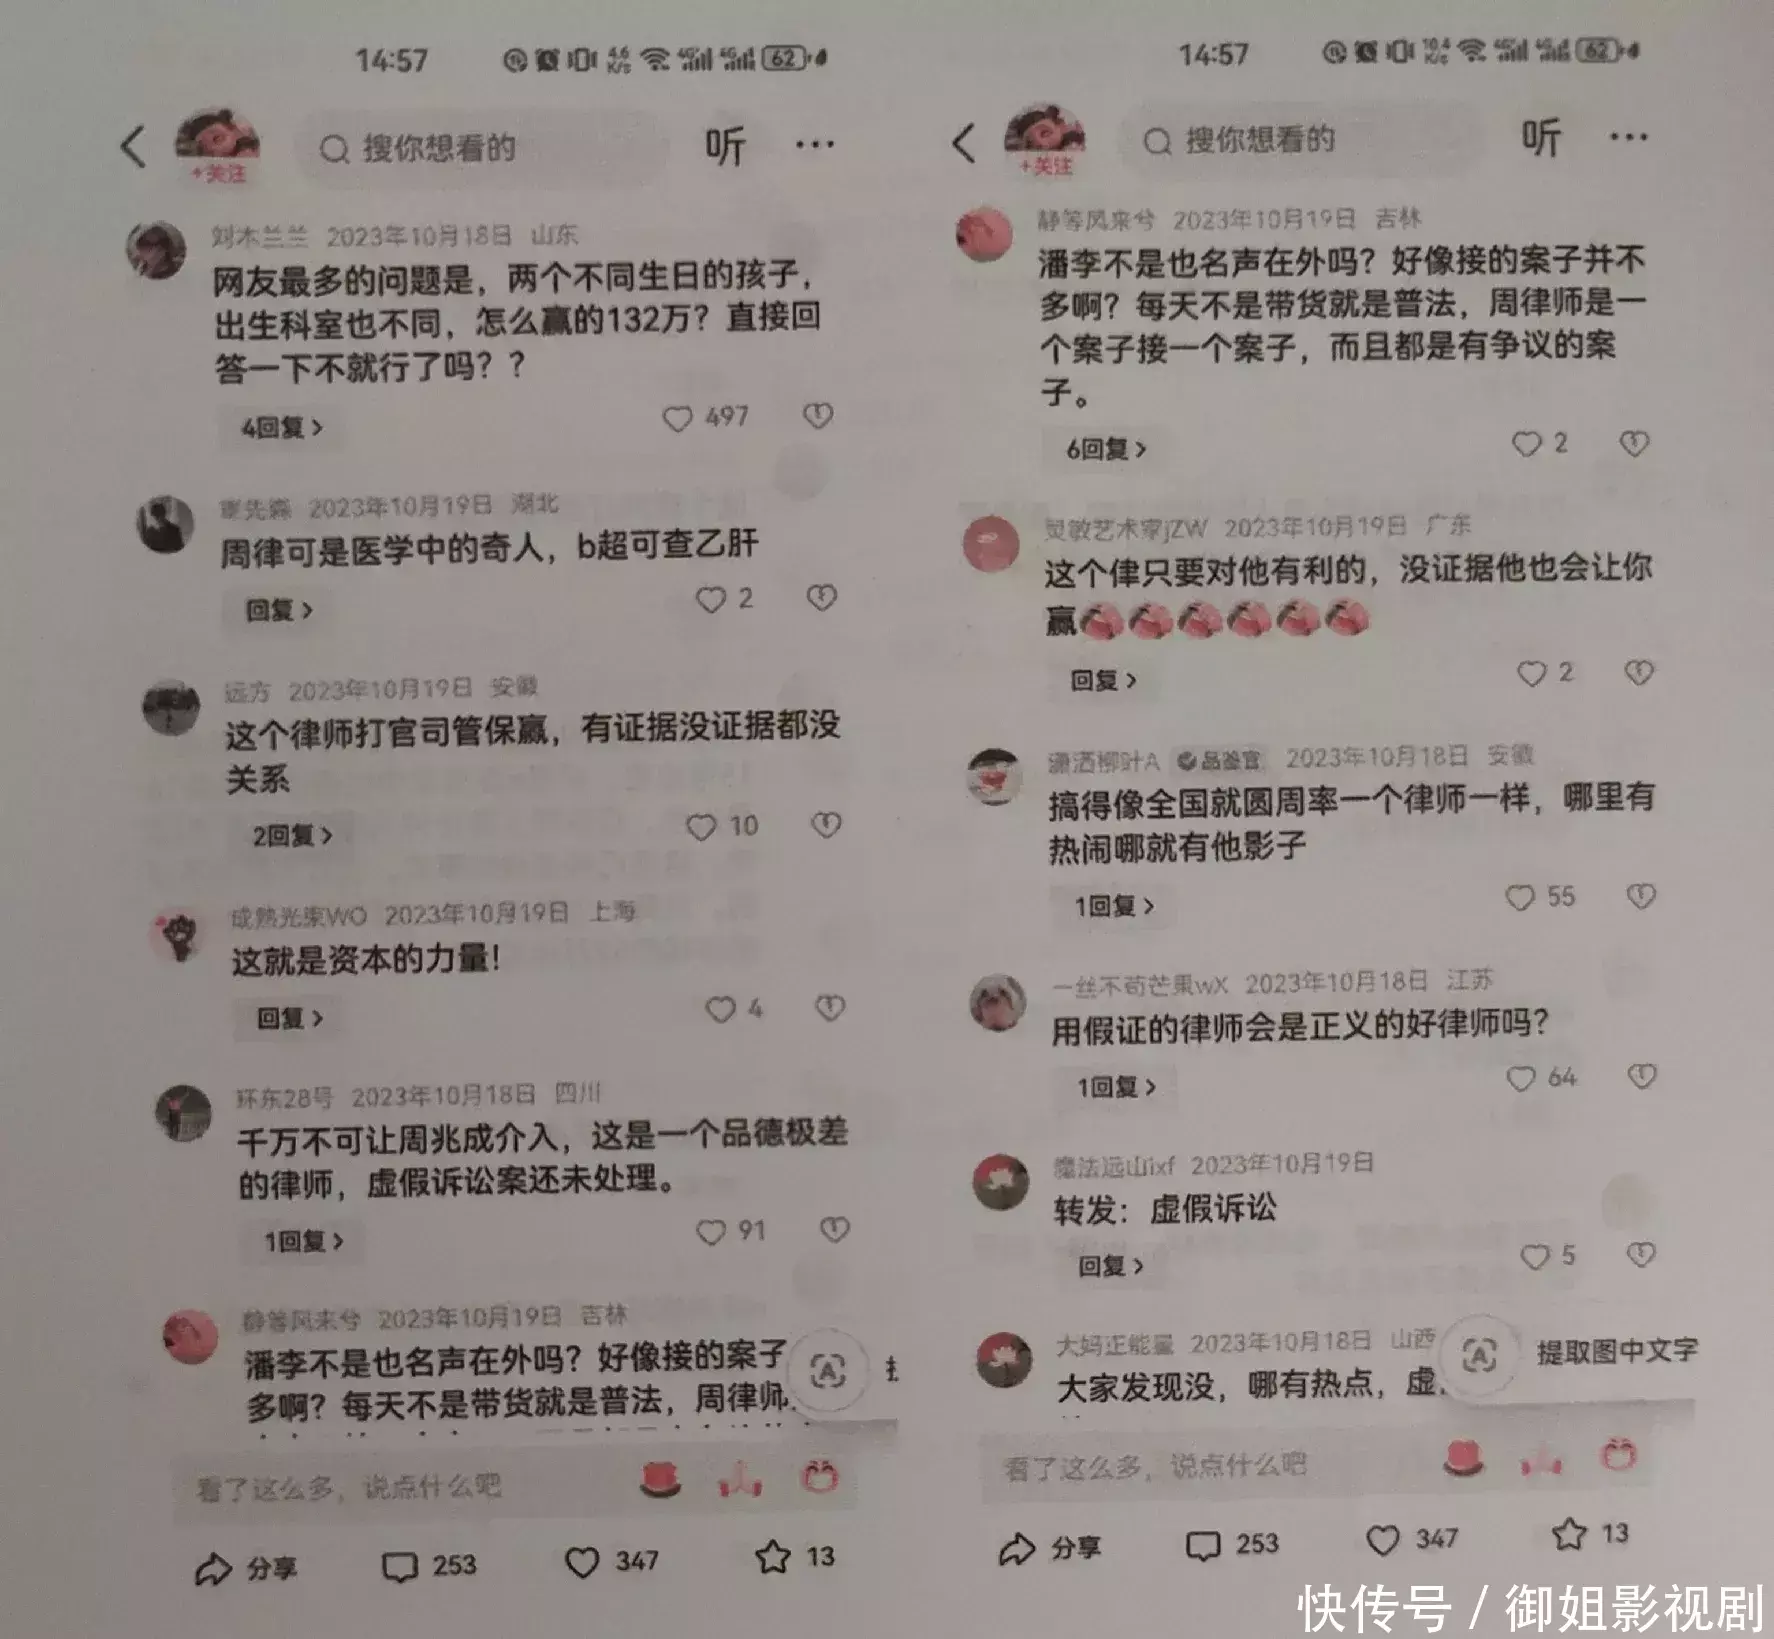 14:57
4.6
K/s
62
搜你想看的
听
+关注
刘木兰兰 2023年10月18日 山东
网友最多的问题是，两个不同生日的孩子，
出生科室也不同，怎么赢的132万？直接回
答一下不就行了吗？？
4回复
497
2023年10月19日 湖北
周律可是医学中的奇人，b超可查乙肝
回复
2
远方 2023年10月19日 安徽
这个律师打官司管保赢，有证据没证据都没
关系
2回复
10
成熟光束WO 2023年10月19日 上海
这就是资本的力量！
回复
4
环东28号 2023年10月18日 四川
千万不可让周兆成介入，这是一个品德极差
的律师，虚假诉讼案还未处理。
1回复
91
静等风来兮 2023年10月19日 吉林
潘李不是也名声在外吗？好像接的案子
多啊？每天不是带货就是普法，周律师
看了这么多，说点什么吧
分享
253
347
13
14:57
10.4
K/s
62
搜你想看的
听
+关注
静等风来兮 2023年10月19日 吉林
潘李不是也名声在外吗？好像接的案子并不
多啊？每天不是带货就是普法，周律师是一
个案子接一个案子，而且都是有争议的案
子。
6回复
2
灵敏艺术家jZW 2023年10月19日 广东
这个侓只要对他有利的，没证据他也会让你
赢
回复
2
潇洒柳叶A 品鉴官 2023年10月18日 安徽
搞得像全国就圆周率一个律师一样，哪里有
热闹哪就有他影子
1回复
55
一丝不苟芒果wX 2023年10月18日 江苏
用假证的律师会是正义的好律师吗？
1回复
64
魔法远山ixf 2023年10月19日
转发：虚假诉讼
回复
5
大妈正能量 2023年10月18日 山西
大家发现没，哪有热点，虚
提取图中文字
看了这么多，说点什么吧
分享
253
347
13
快传号 / 御姐影视剧